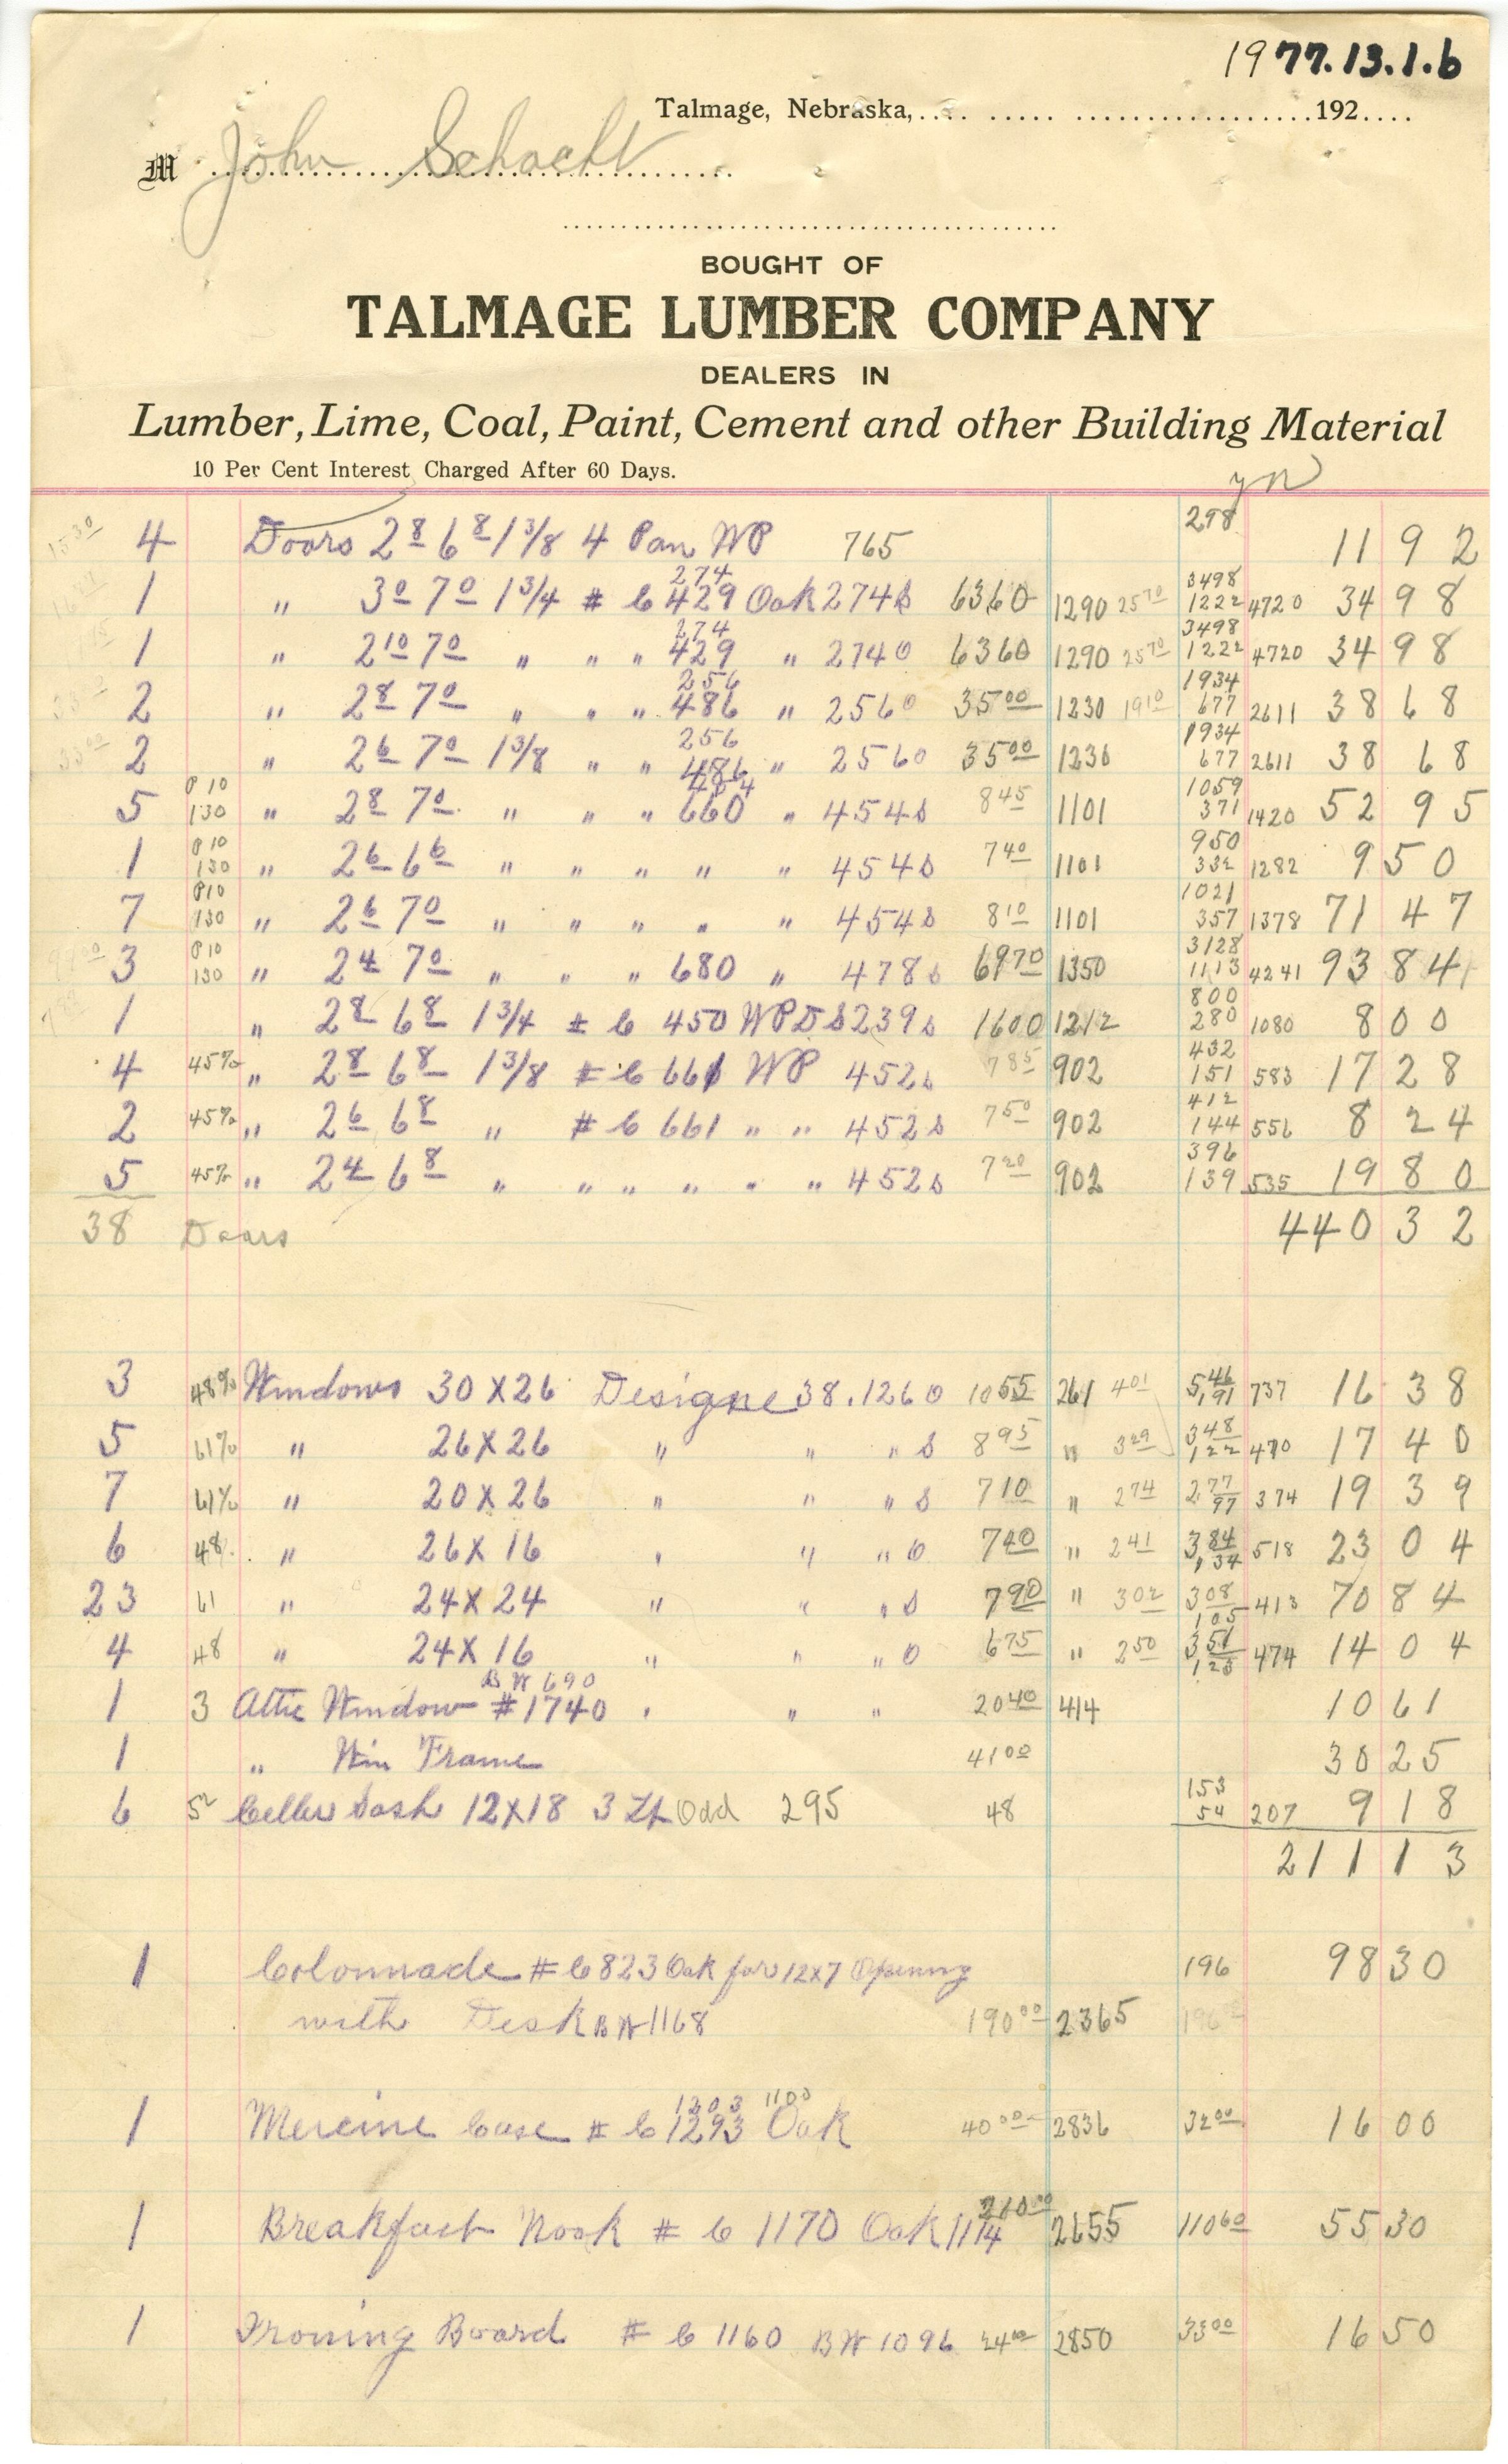 1977.13.1.b
Talmage, Nebraska, 192
M John Schacht
BOUGHT OF
TALMAGE LUMBER COMPANY
DEALERS IN
Lumber, Lime, Coal, Paint, Cement and other Building Material
10 Per Cent Interest Charged After 60 Days.
298
4 Doors 2 8 6 8 1 3/8 4 Pan WP 765 11 92
274 3498
1 " 3 0 7 0 1 3/4 # 6 429 Oak 274 s 6360 1290 25 70 1222 4720 34 98
274 3498
1 " 2 10 7 0 " " " 429 " 2740 6360 1290 25 70 1222 4720 34 98
256 1934
2 " 2 8 7 0 " " " 486 " 2560 35 00 1230 19 10 677 2611 38 68
256 1934
2 " 2 6 7 0 1 3/8 " " 486 " 2560 35 00 1230 677 2611 38 68
P 10 454 1059
5 130 " 2 8 7 0 " " " 660 " 454 s 8 45 1101 371 1420 52 95
P 10 950
1 130 " 2 6 6 6 " " " " " 454 s 7 40 1101 332 1282 9 50
P 10 1021
7 130 " 2 6 7 0 " " " " " 454 s 8 10 1101 357 1378 71 47
P 10 3128
3 130 " 2 4 7 0 " " " 680 " 478 s 69 70 1350 1113 4241 93 84
800
1 " 2 8 6 8 1 3/4 # 6 450 WP DS 239 s 1600 1212 280 1080 8 00
432
4 45% " 2 8 6 8 1 3/8 # 6 661 WP 452 s 7 85 902 151 583 17 28
412
2 45% " 2 6 6 8 " # 6 661 " " 452 s 7 50 902 144 556 8 24
396
5 45% " 2 4 6 8 " " " " " " 452 s 7 20 902 139 535 19 80
38 Doors 440 32
3 48% Windows 30 X 26 Designe 38.1260 10 55 261 4 01 5 46 1,91 737 16 38
5 61% " 26 X 26 " " " s 8 95 " 3 29 3 48 1,22 470 17 40
7 61% " 20 X 26 " " " s 7 10 " 2 74 2 77 97 374 19 39
6 48 " 26 X 16 " " " o 7 40 " 2 41 3,84 1,34 518 23 04
23 61 " 24 X 24 " " " s 7 90 " 3 02 3 08 1 05 413 70 84
4 48 " 24 X 16 " " " o 6 75 " 2 50 3 51 1 23 474 14 04
BW 690
1 3 Attic Window #1740 " " " 20 40 414 10 61
1 " Win Frame 41 00 30 25
153
6 52 Celler Sash 12 X 18 3 Lt Odd 295 48 54 207 9 18
211 13
1 Colonnade # 6 823 Oak for 12x7 Opening 196 98 30
with Desk BW 1168 190 00 2365 196
1303 1100
1 Mercine Case # 6 1293 Oak 40 00 2836 32 00 16 00
210 00
1 Breakfast Nook # 6 1170 Oak 1174 2655 110 60 55 30
1 Ironing Board # 6 1160 BW 1096 24 00 2850 33 00 16 50